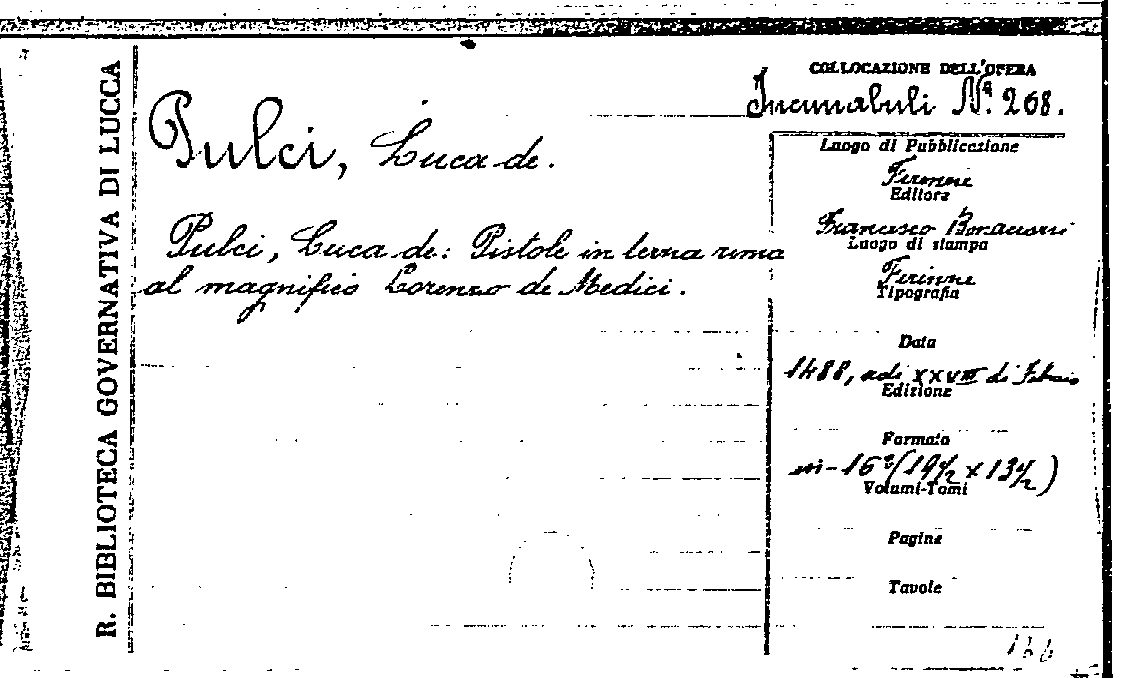 R. BIBLIOTECA GOVERNATIVA DI LUCCA
Pulci, Luca de.
Pulci, Luca de: Pistole in terza rima
al magnifico Lorenzo de Medici.
COLLOCAZIONE DELL'OPERA
Incunabuli Nº. 268.
Luogo di Pubblicazione
Firenze
Editore
Francesco Bonacorsi
Luogo di stampa
Firenze
Tipografia
Data
1488, adi XXVIII di Febraio
Edizione
Formato
in-16º (19 1/2 x 13 1/2)
Volumi-Tomi
Pagine
Tavole